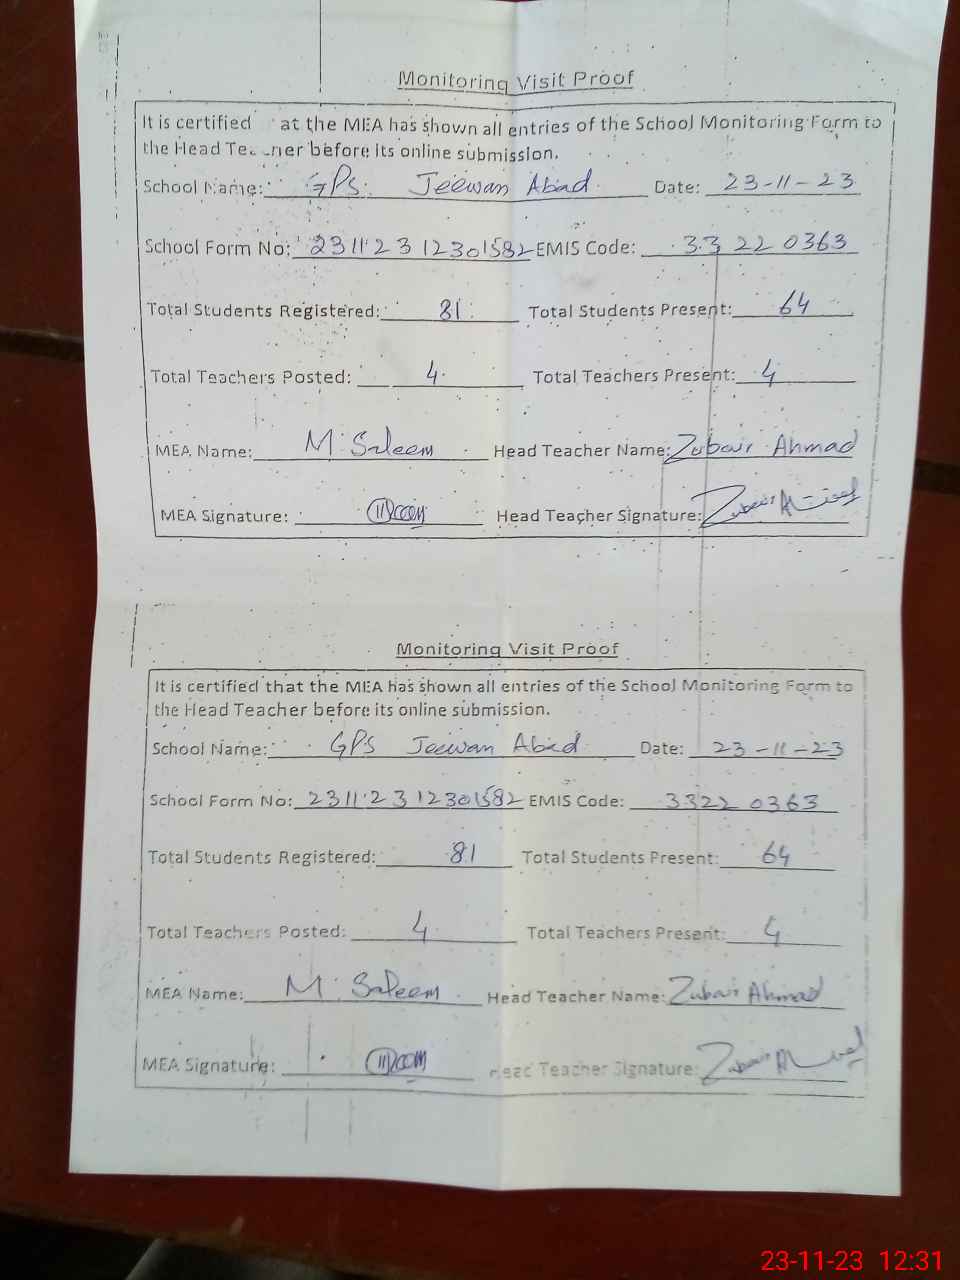 Monitoring Visit Proof
It is certified at the MEA has shown all entries of the School Monitoring Form to
the Head Te ner before its online submission.
School Name: GPS Jeewan Abad Date: 23-11-23
School Form No: 231123 12301582 EMIS Code: 33220363
Total Students Registered: 81 Total Students Present: 64
Total Teachers Posted: 4 Total Teachers Present: 4
MEA Name: M. Saleem Head Teacher Name: Zubair Ahmad
MEA Signature: Head Teacher Signature: Zubair
Monitoring Visit Proof
It is certified that the MEA has shown all entries of the School Monitoring Form to
the Head Teacher before its online submission.
School Name: GPS Jeewan Abad Date: 23-11-23
School Form No: 231123 12301582 EMIS Code: 33220363
Total Students Registered: 81 Total Students Present: 64
Total Teachers Posted: 4 Total Teachers Present: 4
MEA Name: M. Saleem Head Teacher Name: Zubair Ahmad
MEA Signature: Head Teacher Signature: Zubair
23-11-23 12:31